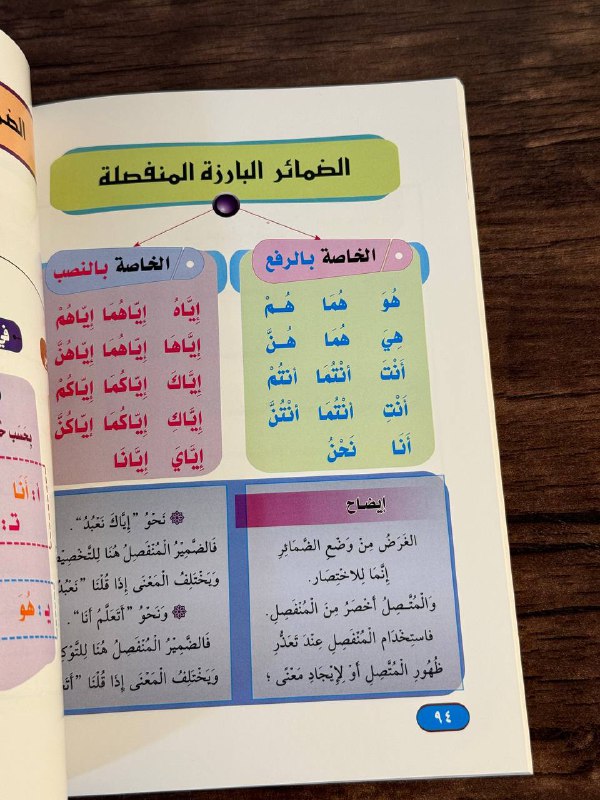 الضمائر البارزة المنفصلة
الخاصة بالرفع
هُوَ هُمَا هُـمْ
هِيَ هُمَا هُـنَّ
أَنْتَ أَنْتُمَا أَنتُمْ
أَنْتِ أَنْتُمَا أَنْتُنَّ
أَنَا نَحْنُ
الخاصة بالنصب
إِيَّاهُ إِيّاهُمَا إِيّاهُمْ
إِيَّاهَا إِيّاهُمَا إِيّاهُنَّ
إِيَّاكَ إِيّاكُمَا إِيّاكُمْ
إِيَّاكِ إِيّاكُمَا إِيّاكُنَّ
إِيَّايَ إِيَّانَا
إيضاح
الغَرَضُ مِنْ وَضْعِ الضَّمائِرِ
إِنَّمَا لِلاخْتِصَارِ.
وَالْمُتَّـصِلُ أَخْصَرُ مِنَ الْمُنْفَصِلِ.
فَاسْتِخْدَام الْمُنْفَصِلِ عِنْدَ تَعَذُّرِ
ظُهُورِ الْمُتَّصِلِ أَوْ لِإِيجَادِ مَعْنًى ؛
نَحْوُ "إِيَّاكَ نَعْبُدُ".
فَالضَّمِيْرُ الْمُنْفَصِلُ هُنَا لِلتَّخْصِيْـ
وَيَخْتَلِفُ الْمَعْنَى إِذَا قُلْنَا "نَعْبُدُ
وَنَحْوُ "أَتَعَلَّمُ أَنَا".
فَالضَّمِيْرُ الْمُنْفَصِلُ هُنَا لِلتَّوْكِـ
وَيَخْتَلِفُ الْمَعْنَى إِذَا قُلْنَا "أَتَعَـ
٩٤
في
أ: أَنَا
ت:
ب: هُوَ